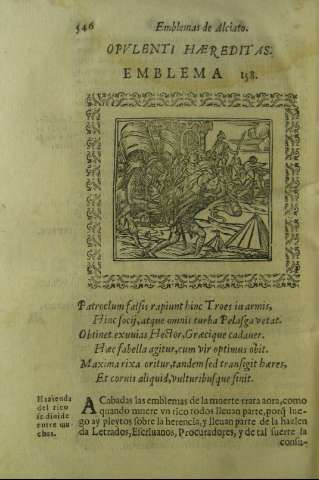 546 Emblemas de Alciato.
OPVLENTI HÆREDITAS.
EMBLEMA 158.
Patroclum falsis rapiunt hinc Troes in armis,
Hinc socij, atque omnis turba Pelasga vetat.
Obtinet exuuias Hector, Græcique cadauer.
Hæc fabella agitur, cum vir optimus obit.
Maxima rixa oritur, tandem sed transigit hæres,
Et coruis aliquid, vulturibusque sinit.
Hazienda
del rico
se diuide
entre mu
chos.
ACabadas las emblemas de la muerte trata aora, como
quando muere vn rico todos lleuan parte, porq̃ lue-
go ay pleytos sobre la herencia, y lleuan parte de la hazien
da Letrados, Escriuanos, Procuradores, y de tal suerte la
consu-